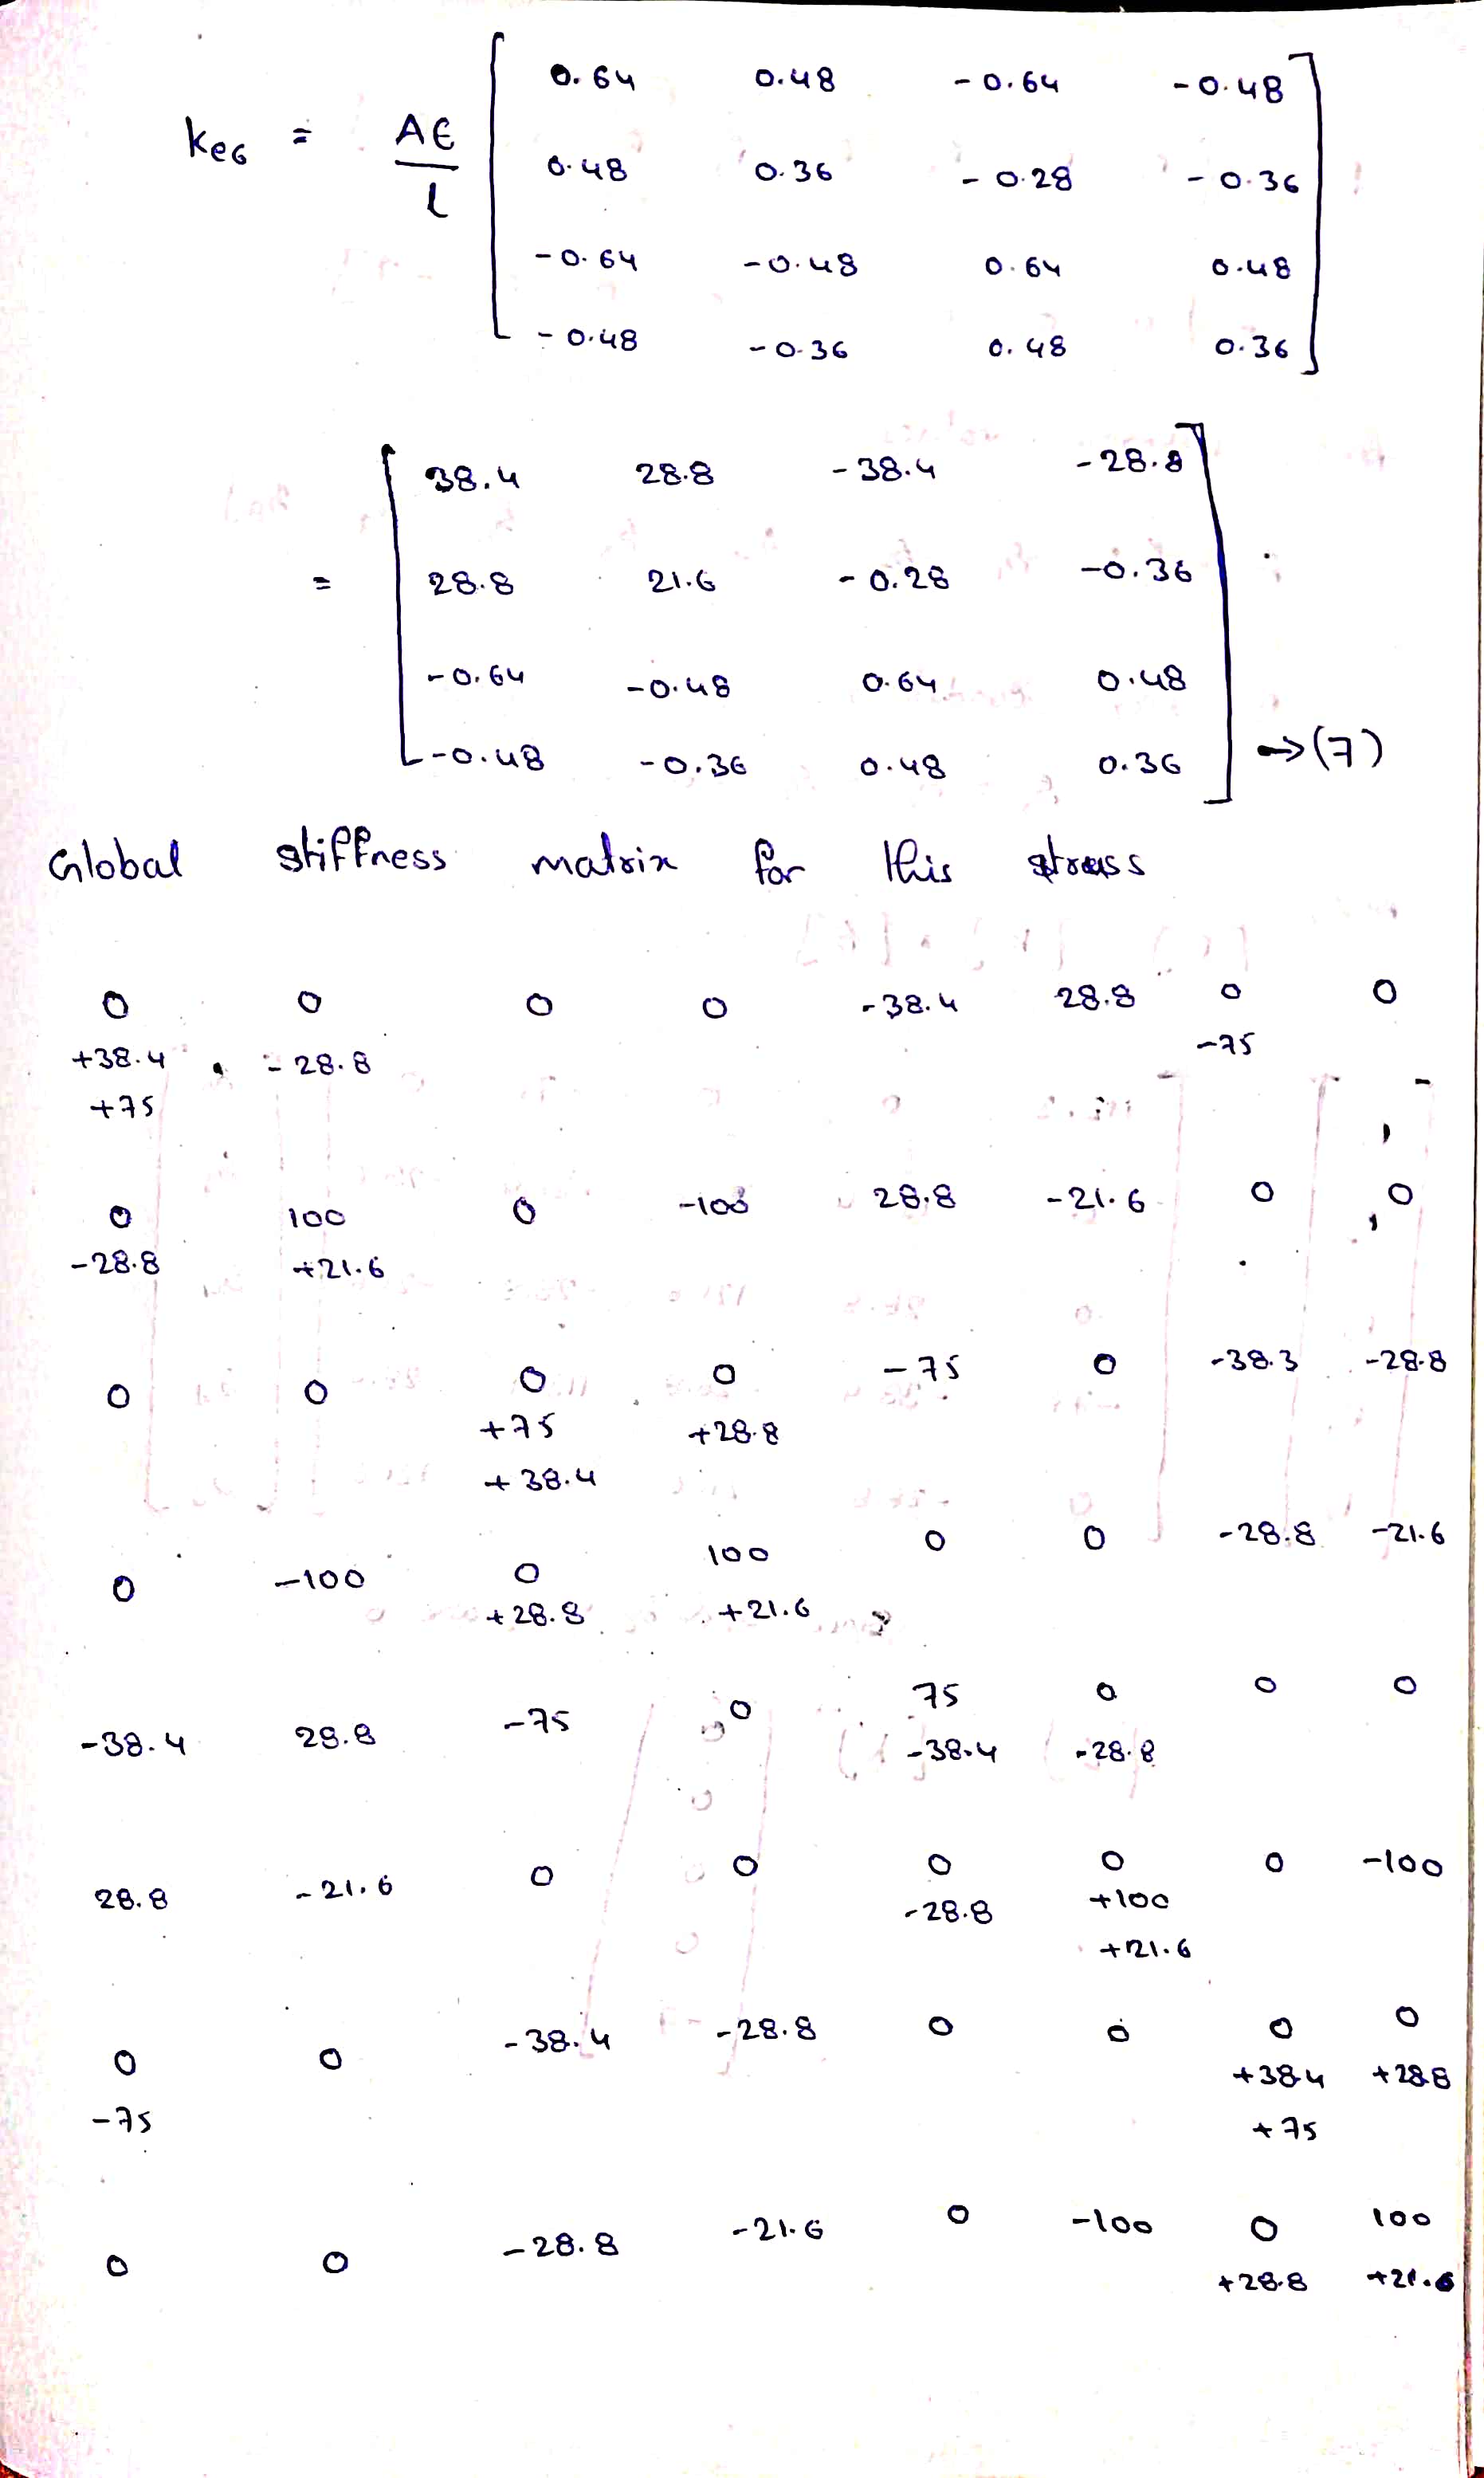 Ke6 = AE/l
0.64 0.48 -0.64 -0.48
0.48 0.36 -0.28 -0.36
-0.64 -0.48 0.64 0.48
-0.48 -0.36 0.48 0.36
=
38.4 28.8 -38.4 -28.8
28.8 21.6 -0.28 -0.36
-0.64 -0.48 0.64 0.48
-0.48 -0.36 0.48 0.36 → (7)
Global stiffness matrix for this
0 0 0 0 -38.4 28.8 0 0
+38.4 -28.8 -75
+75
0 100 0 -100 28.8 -21.6 0 0
-28.8 +21.6
0 0 0 0 -75 0 -38.3 -28.8
+75 +28.8
+38.4
0 -100 0 100 0 0 -28.8 -21.6
+28.8 +21.6
-38.4 28.8 -75 0 75 0 0 0
-38.4 -28.8
28.8 -21.6 0 0 0 0 0 -100
-28.8 +100
+21.6
0 0 -38.4 -28.8 0 0 0 0
-75 +38.4 +28.8
+75
0 0 -28.8 -21.6 0 -100 0 100
+28.8 +21.6